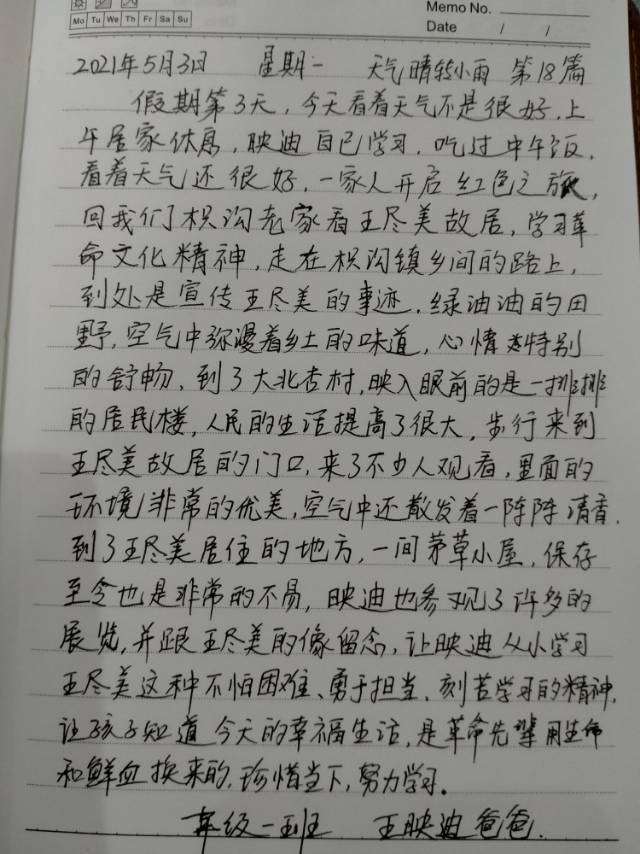 Memo No.
Mo Tu We Th Fr Sa Su
Date / /
2021年5月3日 星期一 天气晴转小雨 第18篇
假期第3天,今天看着天气不是很好,上
午居家休息,映迪自己学习,吃过中午饭,
看着天气还很好,一家人开启红色之旅,
回我们枳沟老家看王尽美故居,学习革
命文化精神,走在枳沟镇乡间的路上,
到处是宣传王尽美的事迹,绿油油的田
野,空气中弥漫着乡土的味道,心情特别
的舒畅,到了大北杏村,映入眼前的是一排排
的居民楼,人民的生活提高了很大,步行来到
王尽美故居的门口,来了不少人观看,里面的
环境非常的优美,空气中还散发着一阵阵清香,
到了王尽美居住的地方,一间茅草小屋,保存
至今也是非常的不易,映迪也参观了许多的
展览,并跟王尽美的像留念,让映迪从小学习
王尽美这种不怕困难、勇于担当、刻苦学习的精神,
让孩子知道今天的幸福生活,是革命先辈用生命
和鲜血换来的,珍惜当下,努力学习。
年级一班 王映迪爸爸.